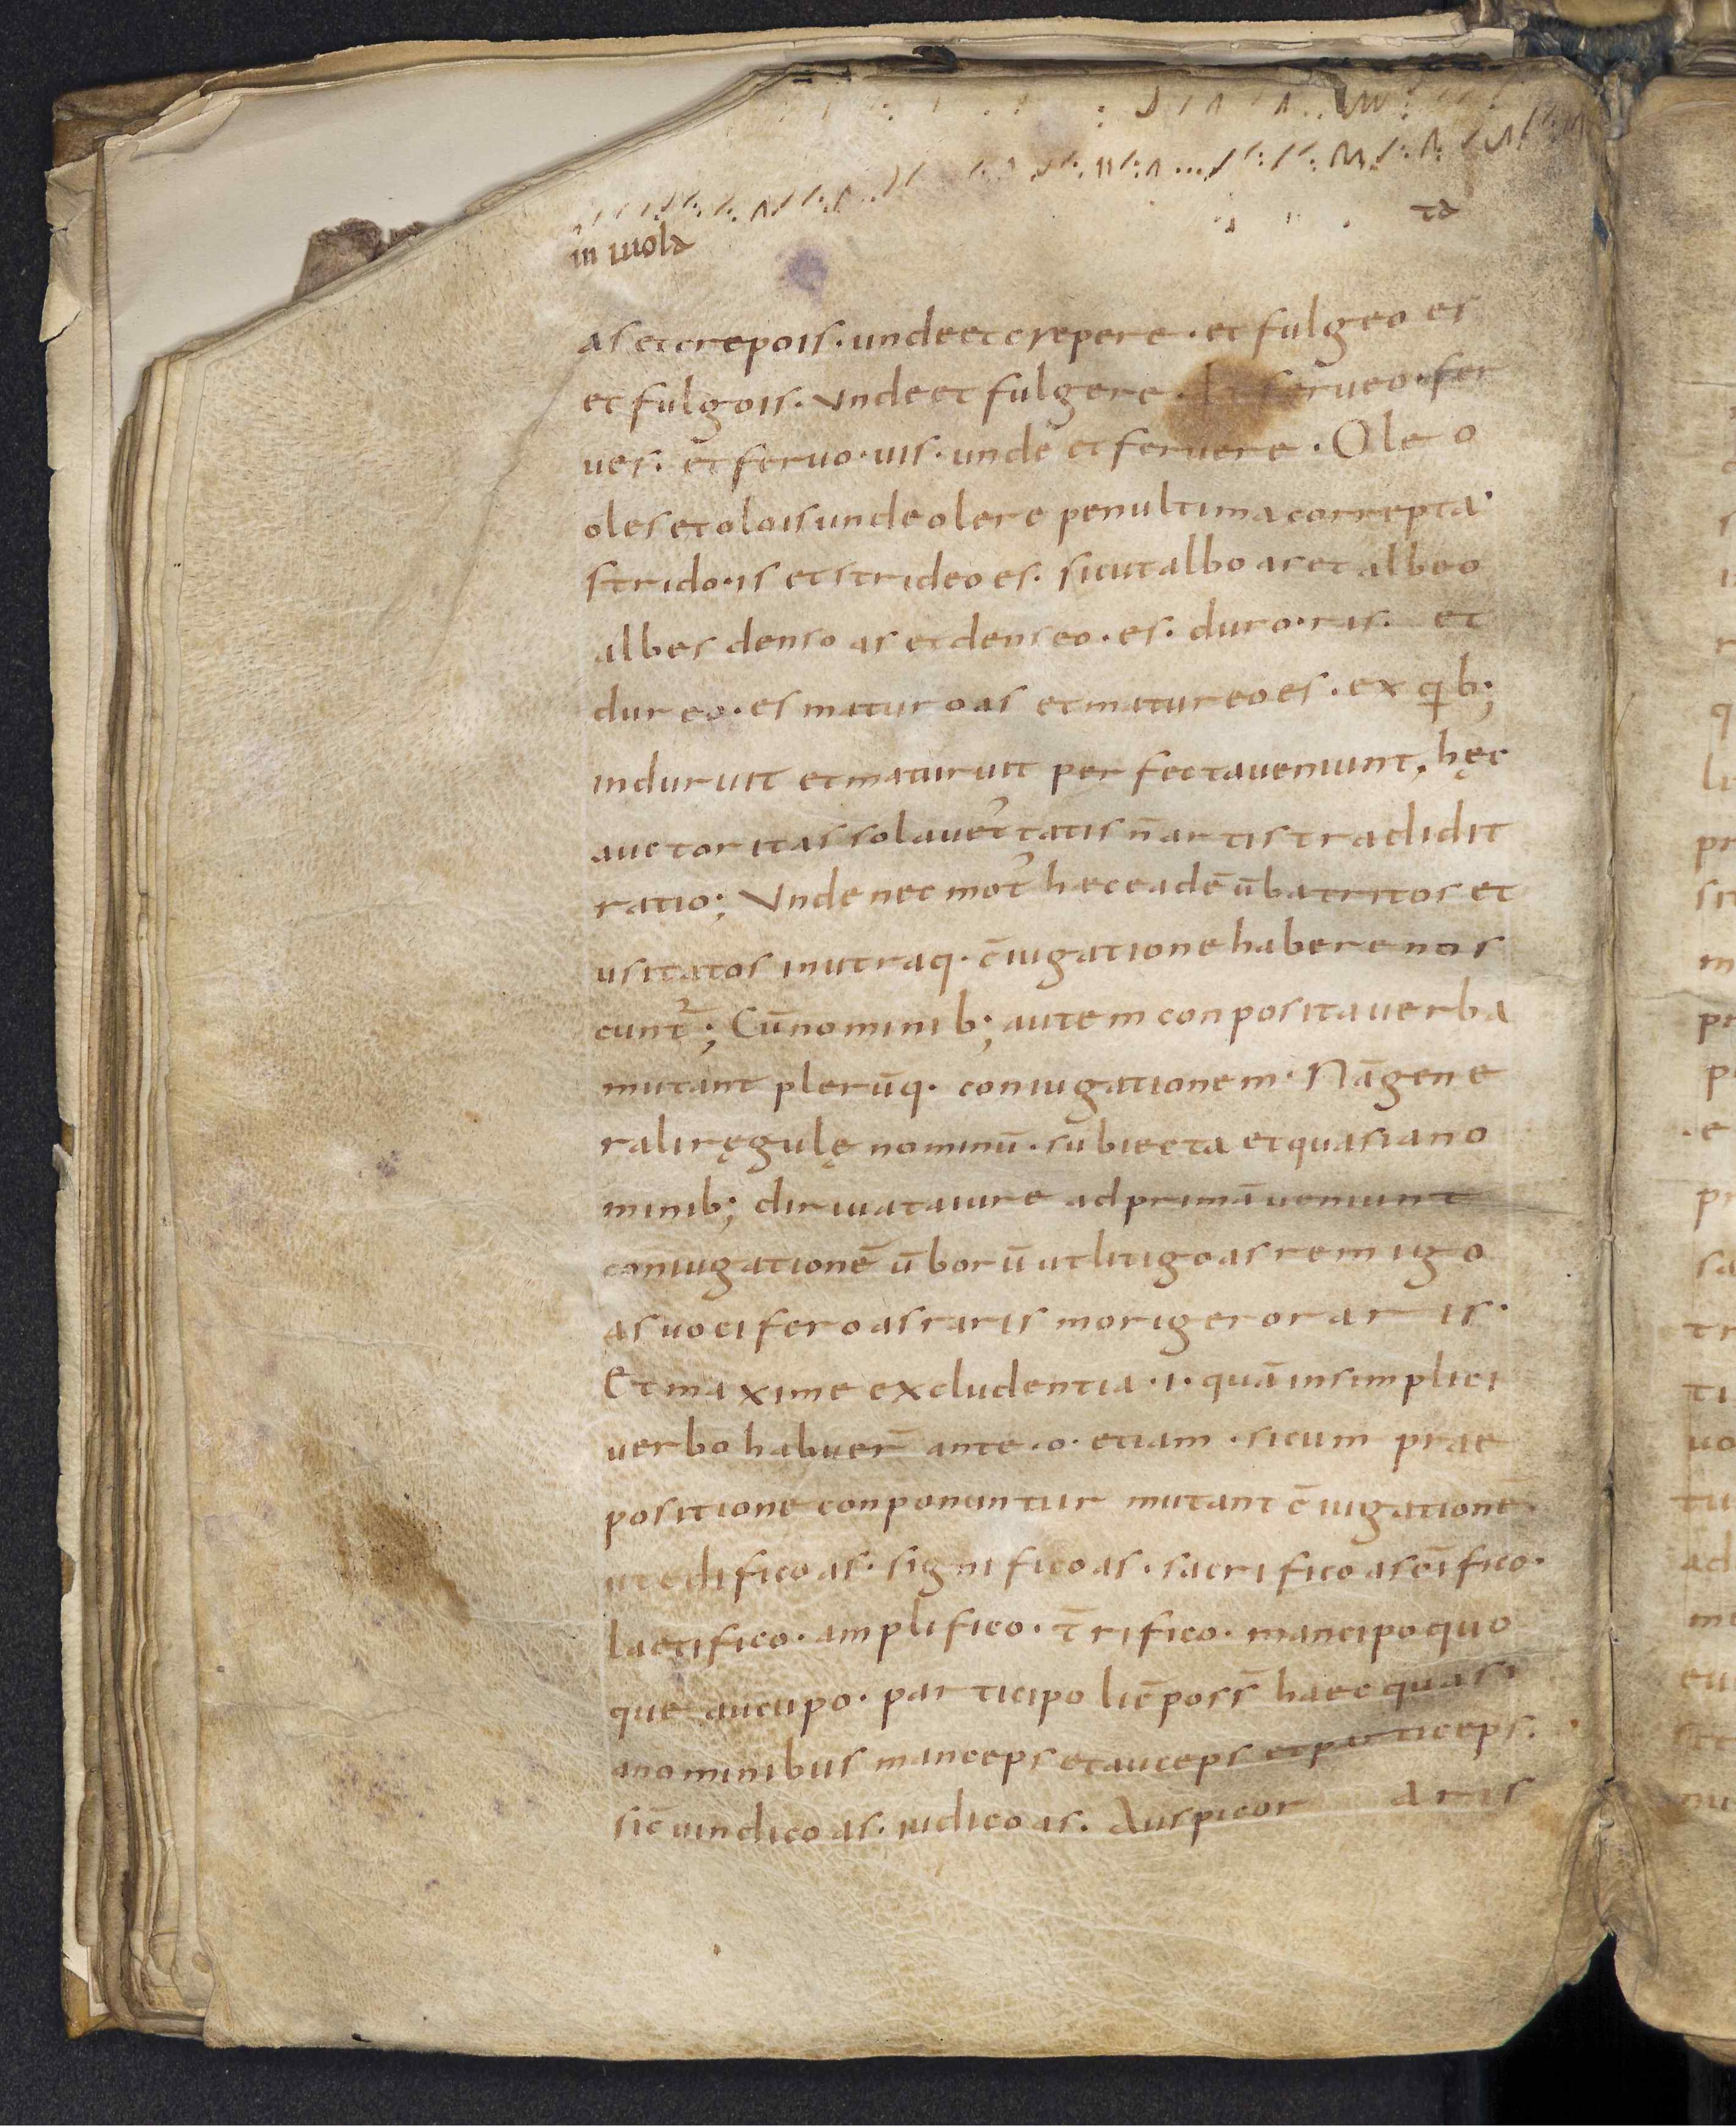 in uiola
ta
as et crepo is · unde et crepere · et fulgeo es
et fulgo is · Unde et fulgere · Et ferueo · fer
ues · et feruo · uis · unde et feruere · Oleo
oles et olo is unde olere penultima correpta ·
strido · is et strideo es · sicut albo as et albeo
albes denso as et denseo · es · duro · ras · et
dureo · es maturo as et matureo es · ex quib;
induruit et maturuit perfecta ueniunt, hęc
auctoritas sola uet̾tatis n̄ artis tradidit
ratio; Unde nec mot̾ hec eadē ūba tritos et
usitatos in utraq · c̄iugatione habere nos
cunt̾; Cū nominib; autem conposita uerba
mutant plerūq · coniugationem · Nā gene
rali ręgulę nominū · subiecta et quasi a no
minib; diriuata iure ad primā ueniunt
coniugationē ūborū ut litigo as remigo
as uocifero as raris morigeror ar is ·
Et maxime excludentia · i · quā in simplici
uerbo habuer̄ ante · o · etiam · si cum prae
positione conponuntur mutant c̄iugationē
ut edifico as · significo as · sacrifico as
laetifico · amplifico · t̄rifico · mancipo quo
que aucupo · participo lic̄ poss̄ haec quasi
a nominibus manceps et auceps et particeps ·
sic̄ uindico as · iudico as · Auspicor aris